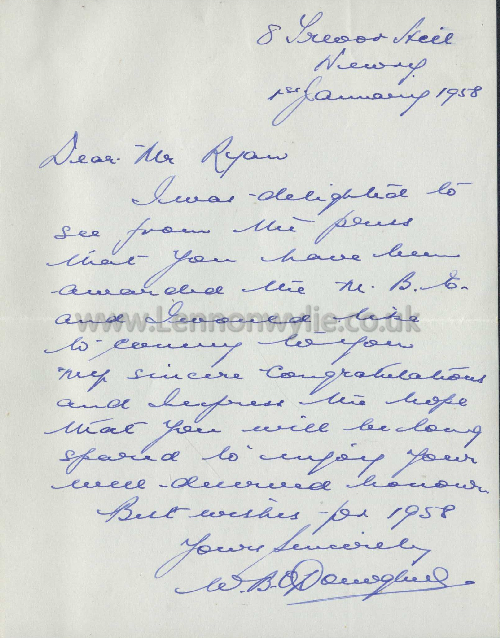 8 Trevor Hill
Newry
1st January 1958
Dear Mr Ryan
I was delighted to
see from the press
that you have been
awarded the M.B.E.
and I would like
to convey to you
my sincere congratulations
and express the hope
that you will be long
spared to enjoy your
well-deserved honour.
Best wishes for 1958
Yours Sincerely
W. B. O'Donoghue
www.Lennonwylie.co.uk